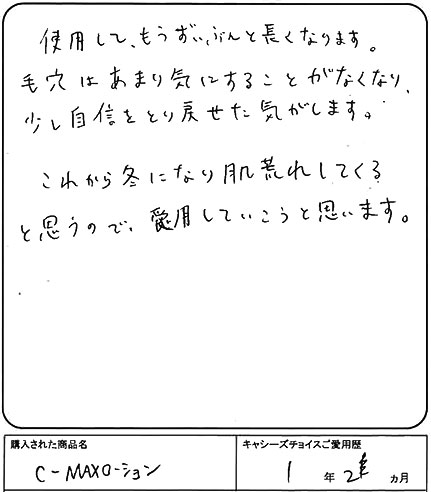 使用して、もうずいぶんと長くなります。
毛穴はあまり気にすることがなくなり、
少し自信をとり戻せた気がします。
これから冬になり肌荒れしてくる
と思うので、愛用していこうと思います。
購入された商品名
C-MAXローション
キャシーズチョイスご愛用歴
1 年 2 ヵ月